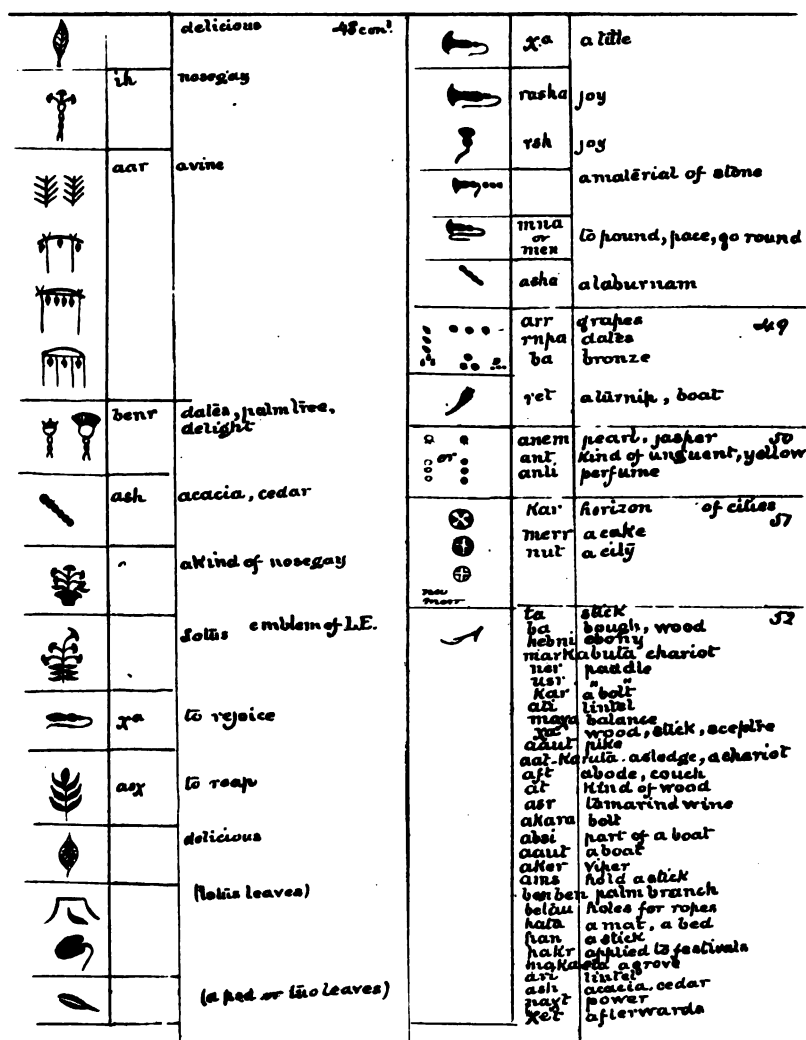 delicious 48 con^d.
ih nosegay
aar a vine
benr dates, palm tree,
delight
ash acacia, cedar
a kind of nosegay
Lotus emblem of L.E.
χa to rejoice
asχ to reap
delicious
(lotus leaves)
(a pod or two leaves)
χa a title
rasha joy
rsh joy
a material of stone
mna
or
men
to pound, pace, go round
asha a laburnam
arr grapes 49
rnpa dates
ba bronze
ret a turnip, boat
anem pearl, jasper 50
or
ant kind of unguent, yellow
anti perfume
Kar horizon of cities
51
merr a cake
nut a city
nou
merr
ta stick 52
ba bough, wood
hebni ebony
markabuta chariot
ner paddle
usr " "
Kar a bolt
ati lintel
maχa balance
χa wood, stick, sceptre
aaut pike
aat-Karuta. a sledge, a chariot
aft abode, couch
at kind of wood
asr tamarind wine
akara bolt
absi part of a boat
aaut a boat
aker viper
ams hold a stick
benben palm branch
betau holes for ropes
hata a mat, a bed
han a stick
hakr applied to festivals
a grove
ari lintel
ash acacia. cedar
naχt power
χet afterwards